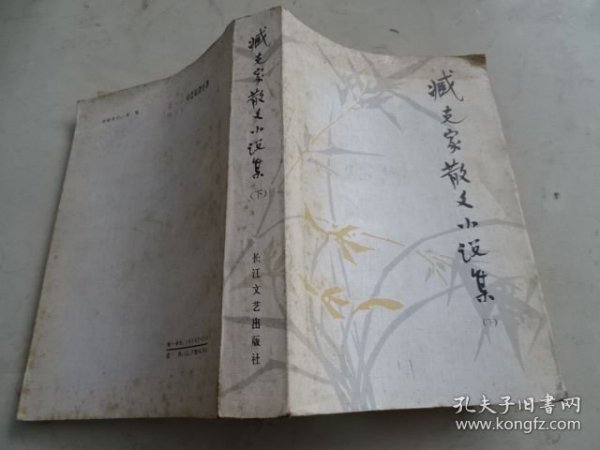 臧克家散文小说集
（下）
长江文艺出版社
臧克家散文小说集
（下）
孔夫子旧书网
www.kongfz.com